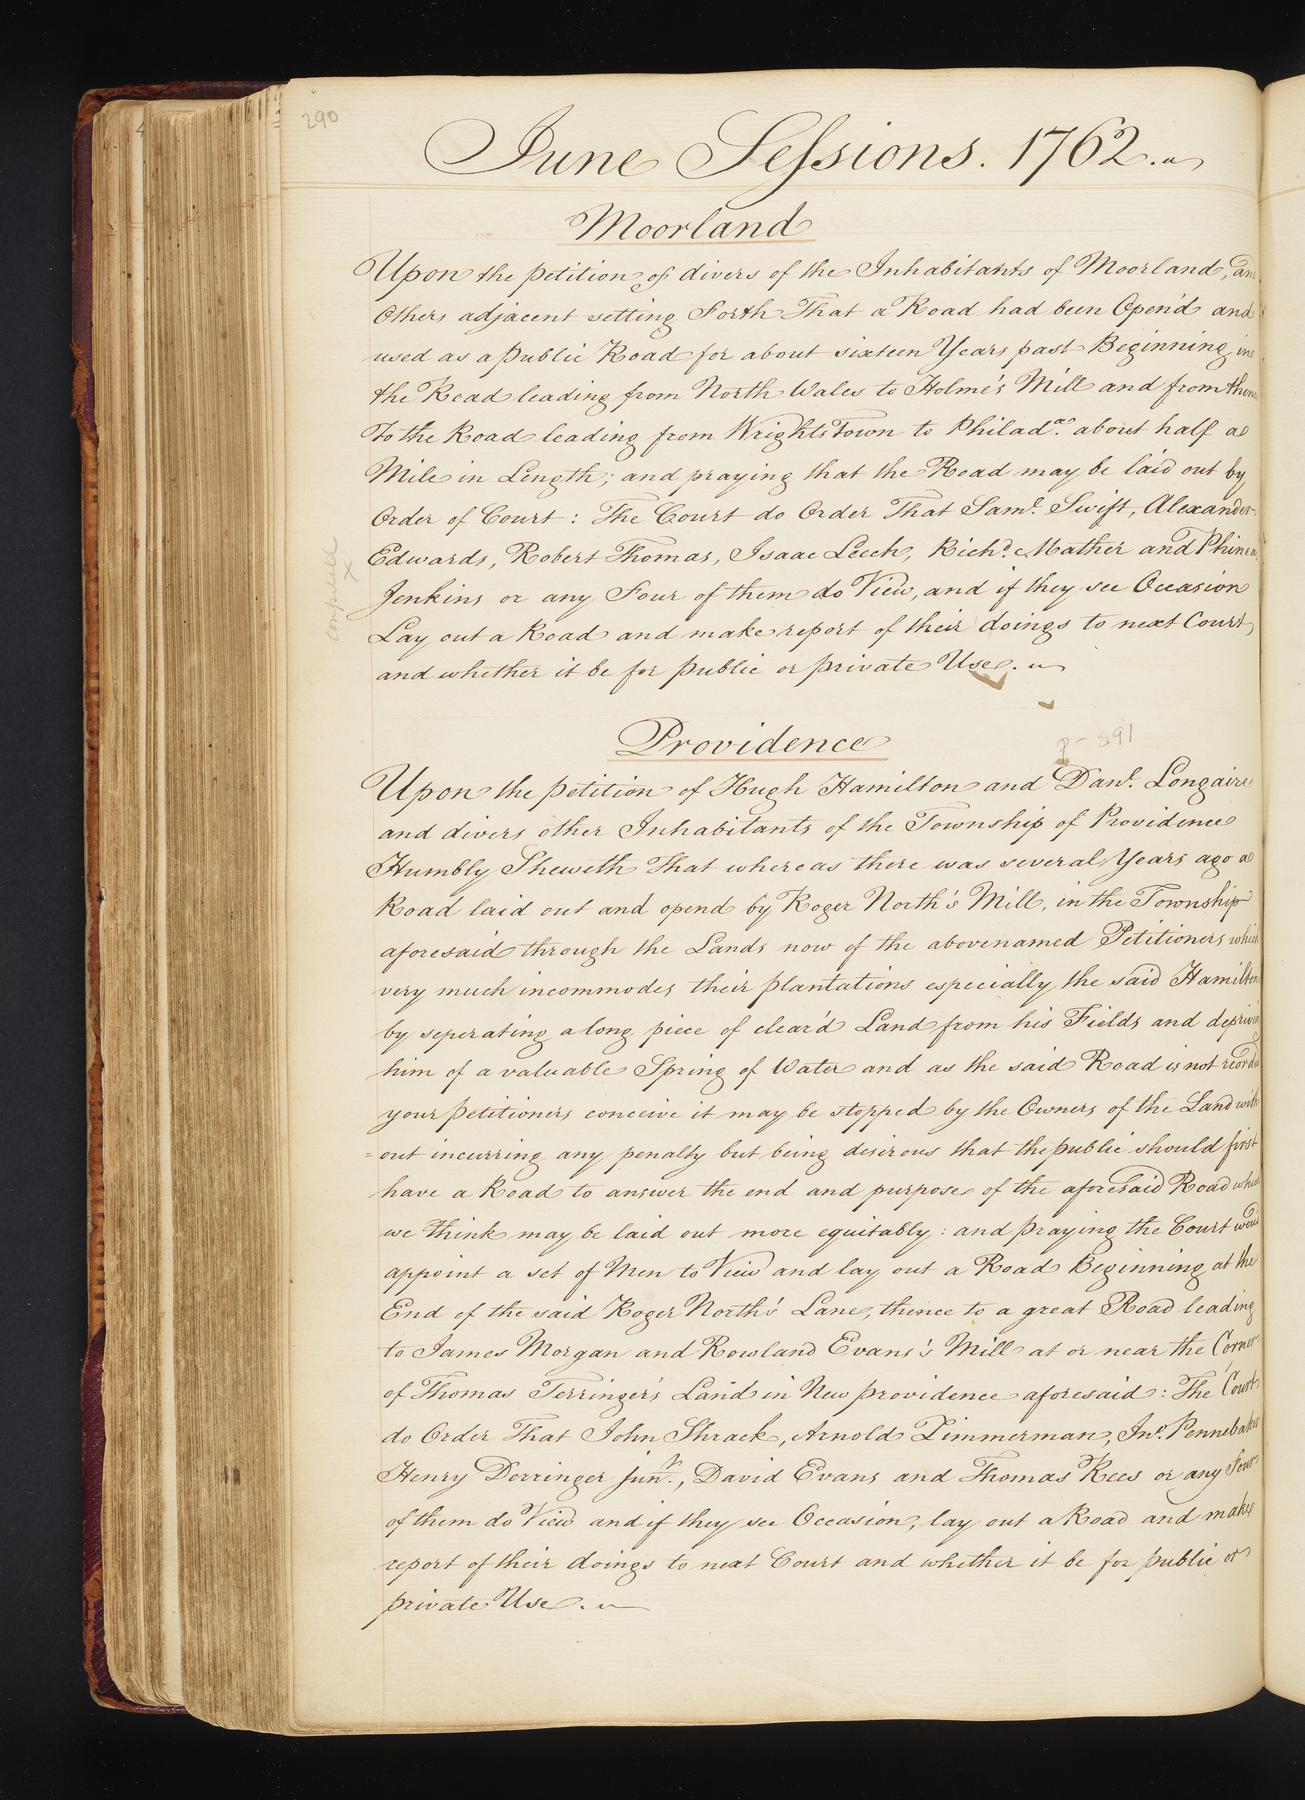 290
June Sessions. 1762.
Moorland
Upon the petition of divers of the Inhabitants of Moorland, and
Others adjacent setting Forth That a Road had been Open'd and
used as a Public Road for about sixteen Years past Beginning in
the Road leading from North Wales to Holme's Mill and from thence
To the Road leading from Wrights Town to Philada. about half a
Mile in Length; and praying that the Road may be laid out by
Order of Court: The Court do Order That Saml. Swift, Alexander
Edwards, Robert Thomas, Isaac Leech, Richd. Mather and Phinea
Jenkins or any Four of them do View, and if they see Occasion
Lay out a Road and make report of their doings to next Court,
and whether it be for public or private Use.
compared
x
Providence
p- 391
Upon the petition of Hugh Hamilton and Danl. Longaire
and divers other Inhabitants of the Township of Providence
Humbly Sheweth That whereas there was several Years ago a
Road laid out and opend by Roger North's Mill, in the Township
aforesaid through the Lands now of the abovenamed Petitioners which
very much incommodes their plantations especially the said Hamilton
by seperating a long piece of clear'd Land from his Fields and depriving
him of a valuable Spring of Water and as the said Road is not recorded
your petitioners conceive it may be stopped by the Owners of the Land with
=out incurring any penalty but being desirous that the public should first
have a Road to answer the end and purpose of the aforesaid Road which
we think may be laid out more equitably: and praying the Court would
appoint a set of Men to View and lay out a Road Beginning at the
End of the said Roger North's Lane, thence to a great Road leading
to James Morgan and Rowland Evans's Mill at or near the Corner
of Thomas Terringer's Land in New providence aforesaid: The Court
do Order That John Shrack, Arnold Zimmerman, Jno. Pennebaker
Henry Derringer junr., David Evans and Thomas Rees or any Four
of them do View and if they see Occasion, lay out a Road and make
report of their doings to next Court and whether it be for public or
private Use.